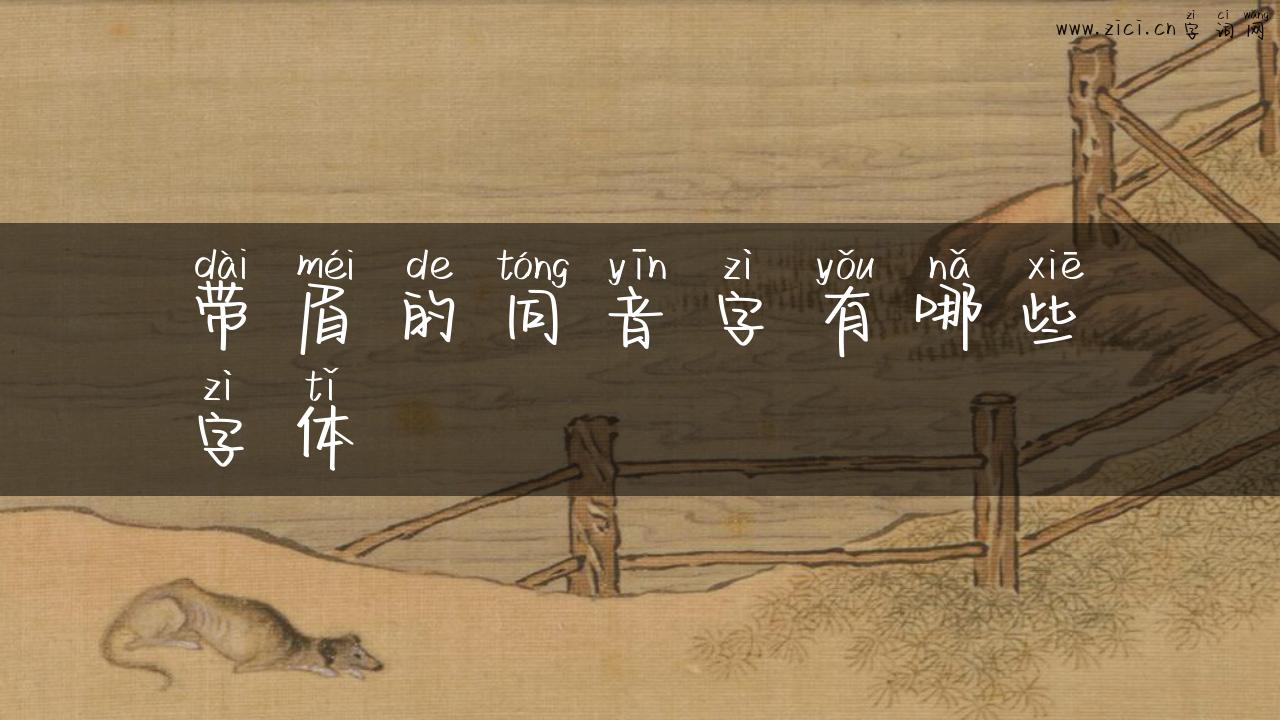 zì cí wǎng
www.zici.cn 字词网
dài méi de tóng yīn zì yǒu nǎ xiē
带眉的同音字有哪些
zì tǐ
字体